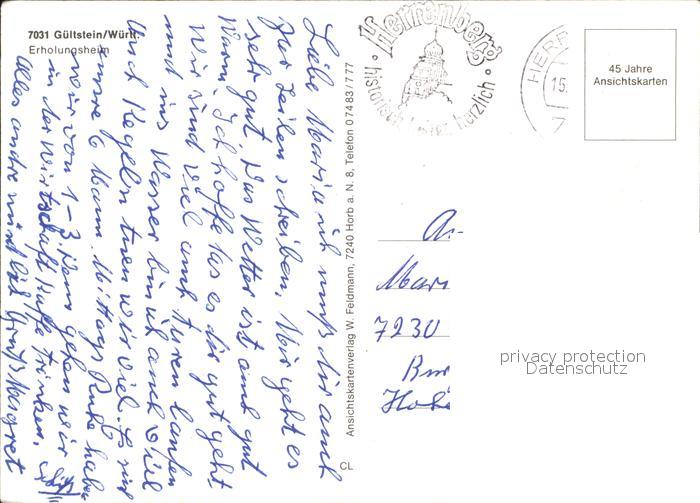 7031 Gültstein/Württ.
Erholungsheim
Liebe Maria ich muß dir auch
paar Zeilen schreiben. Mir geht es
sehr gut. Das Wetter ist auch gut
Warm. Ich hoffe das es dir gut geht
Wir sind viel auch Turen laufen
und ins Wasser bin ich auch viel
Auch Kegeln tuen wir viel. Es sind
unsre 6 Mann. Mittags Ruhe haben
wir von 1-3. Dann gehen wir
in der Wirtschaft Kaffe trinken.
Alles andre mündlich Gruß Margret
Ansichtskartenverlag W. Feldmann, 7240 Horb a. N. 8, Telefon 07483/777
CL
Herrenberg
historisch herzlich
HERR
15.
7
45 Jahre
Ansichtskarten
An
Mari
7230
Hohe
privacy protection
Datenschutz